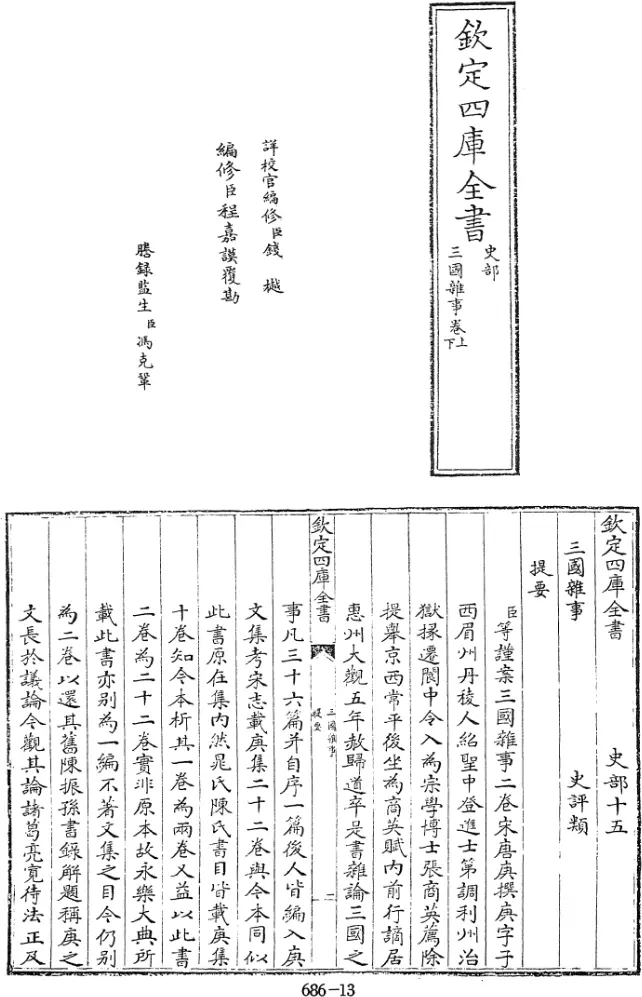 欽定四庫全書
史部
三國雜事卷上
下
詳校官編修臣錢樾
編修臣程嘉謨覆勘
謄錄監生臣馮克鞏
欽定四庫全書
史部十五
三國雜事
史評類
提要
臣等謹案三國雜事二卷宋唐庚撰庚字子
西眉州丹稜人紹聖中登進士第調利州治
獄掾遷閬中令入為宗學博士張商英薦除
提舉京西常平後坐為商英賦內前行謫居
惠州大觀五年赦歸道卒是書雜論三國之
欽定四庫全書
三國雜事
提要
二
事凡三十六篇并自序一篇後人皆編入庚
文集考宋志載庚集二十二卷與今本同似
此書原在集內然晁氏陳氏書目皆載庚集
十卷知今本析其一卷為兩卷又益以此書
二卷為二十二卷實非原本故永樂大典所
載此書亦別為一編不著文集之目今仍別
為二卷以還其舊陳振孫書錄解題稱庚之
文長於議論今觀其論諸葛亮寬待法正及
686-13